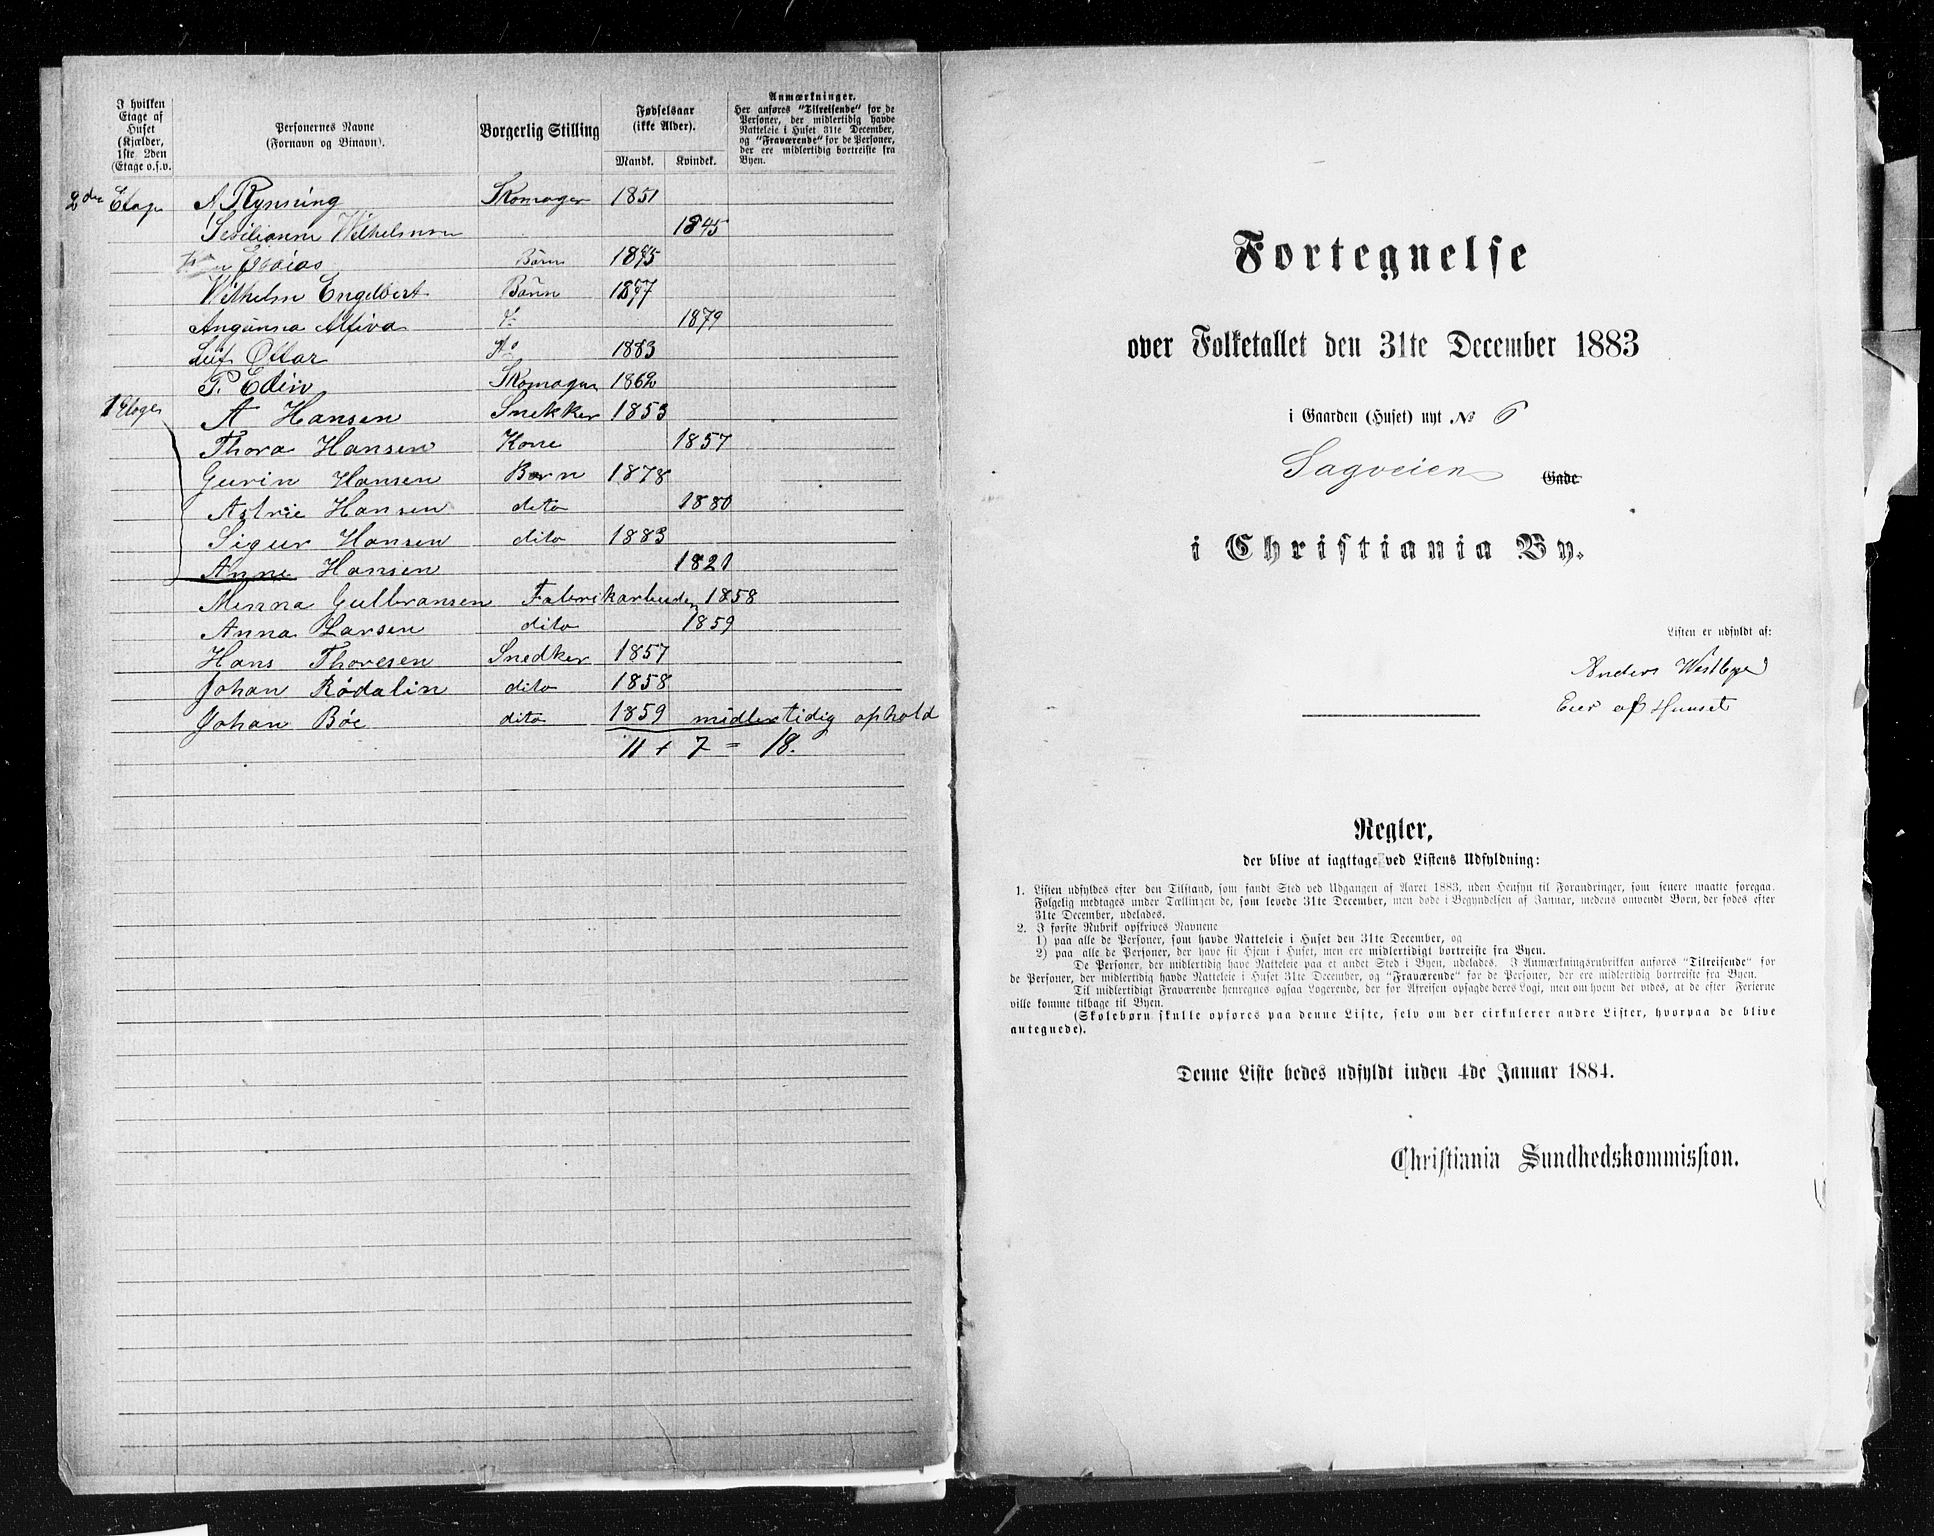 I hvilken Etage af Huset (Kjælder, 1ste 2den Etage o.s.v.
Personernes Navne (Fornavn og Binavn).
Borgerlig Stilling
Fødselsaar (ikke Alder).
Mandk. Kvindek.
Anmærkninger.
Her anføres "Tilreisende" for de Personer, der midlertidig havde Natteleie i Huset 31te December, og "Fraværende" for de Personer, der ere midlertidig bortreiste fra Byen.
2den Etage A Rynning Skomager 1851
Vilhelmine 1845
Børn 1875
Vilhelm Engelbert Børn 1877
Alfiva 1879
Leif Ottar do 1883
P. Edin Skomager 1862
1 Etage A Hansen Snekker 1853
Thora Hansen Kone 1857
Gurin Hansen Barn 1878
Astrie Hansen dito 1880
Sigur Hansen dito 1883
Anne Hansen 1821
Minna Gulbransen Fabrikarbeider 1858
Anna Larsen dito 1859
Hans Thoresen Snedker 1857
Johan Rödalin dito 1858
Johan Böe dito 1859 midlertidig ophold
11 + 7 = 18.
Fortegnelse
over Folketallet den 31te December 1883
i Gaarden (Huset) nyt No 6
Sagveien Gade
i Christiania By.
Listen er udfyldt af:
Anders Westbye
Eier af Huuset
Regler,
der blive at iagttage ved Listens Udfyldning:
1. Listen udfyldes efter den Tilstand, som fandt Sted ved Udgangen af Aaret 1883, uden Hensyn til Forandringer, som senere maatte foregaa.
Følgelig medtages under Tællingen de, som levede 31te December, men døde i Begyndelsen af Januar, medens omvendt Børn, der fødes efter
31te December, udelades.
2. I første Rubrik opskrives Navnene
1) paa alle de Personer, som havde Natteleie i Huset den 31te December, og
2) paa alle de Personer, der have sit Hjem i Huset, men ere midlertidigt bortreiste fra Byen.
De Personer, der midlertidig have Natteleie paa et andet Sted i Byen, udelades. I Anmærkningsrubrikken anføres "Tilreisende" for
de Personer, der midlertidig havde Natteleie i Huset 31te December, og "Fraværende" for de Personer, der ere midlertidig bortreiste fra Byen.
Til midlertidigt Fraværende henregnes ogsaa Logerende, der før Afreisen opsagde deres Logi, men om hvem det vides, at de efter Ferierne
ville komme tilbage til Byen.
(Skolebørn skulle opføres paa denne Liste, selv om der cirkulerer andre Lister, hvorpaa de blive
antegnede).
Denne Liste bedes udfyldt inden 4de Januar 1884.
Christiania Sundhedskommission.